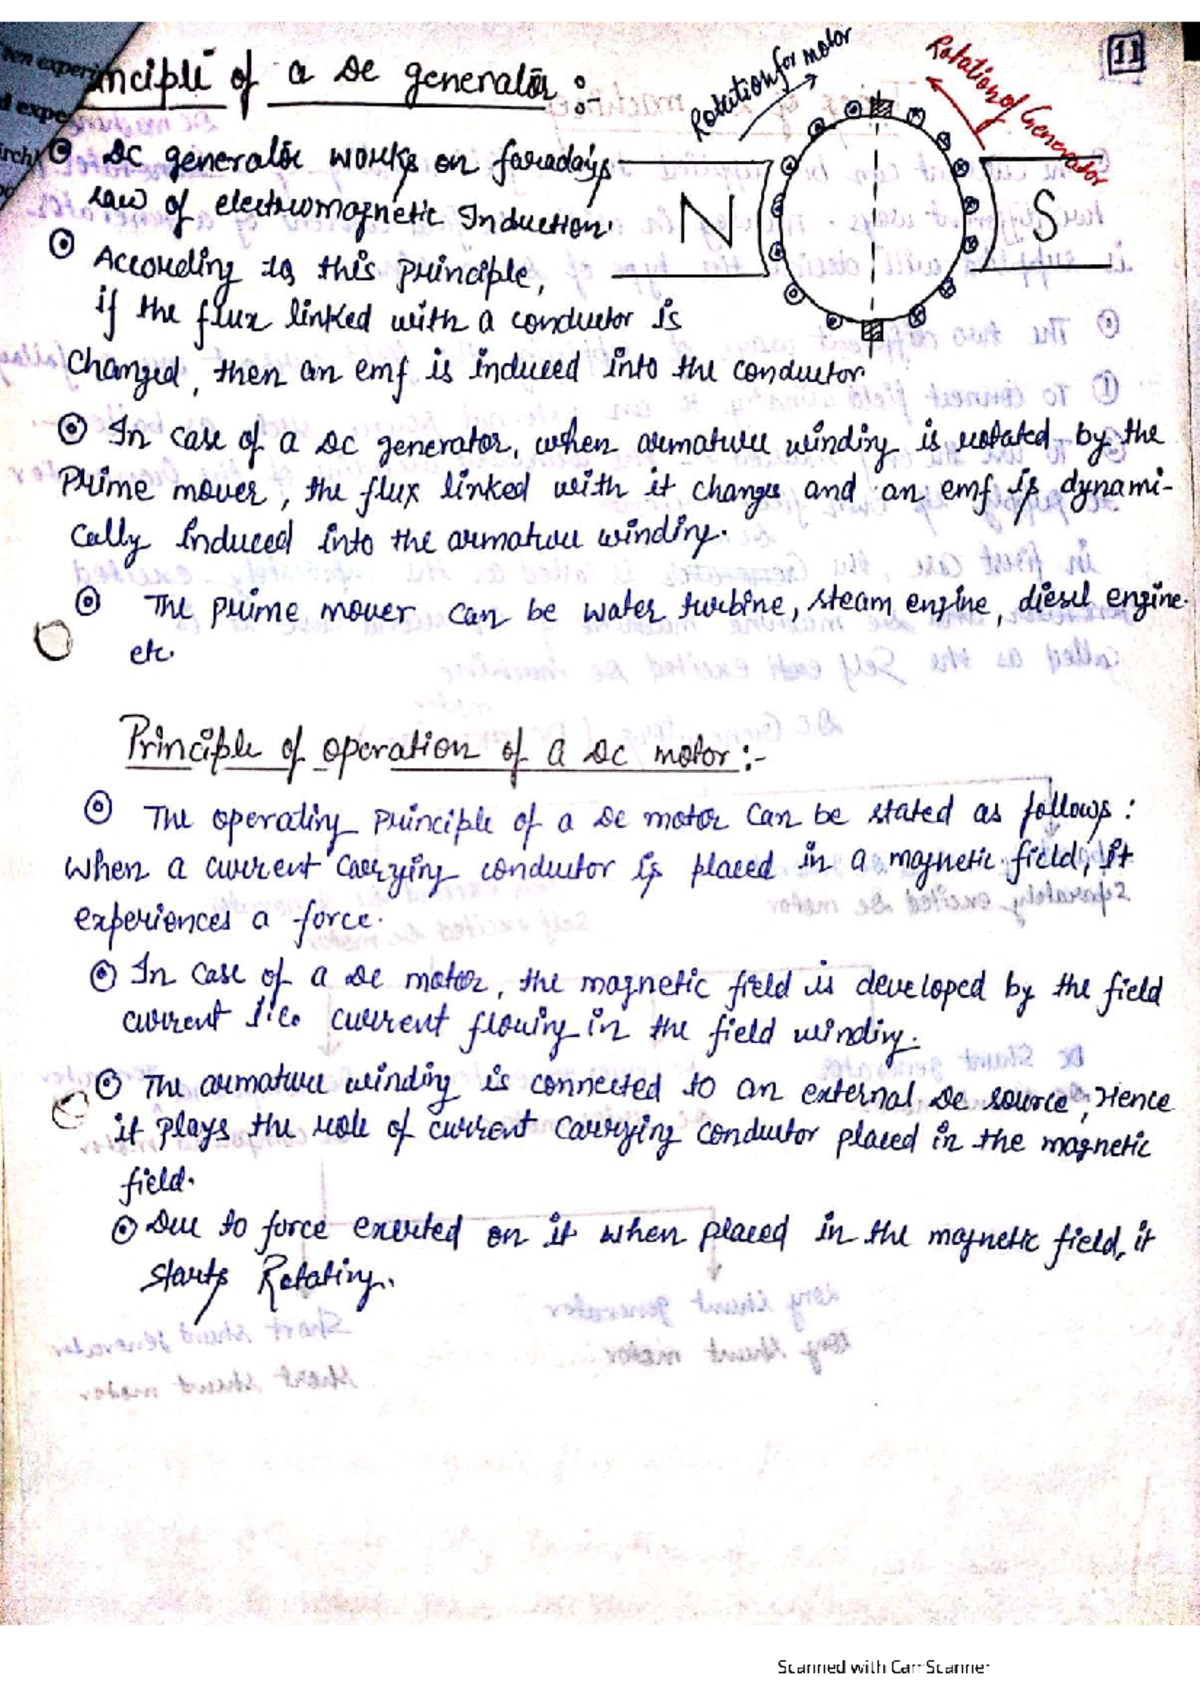 11
Rotation for motor
Rotation of Generator
nciple of a DC generator :-
DC generator works on faradays
law of electromagnetic Induction.
N
S
According to this principle,
if the flux linked with a conductor is
Changed, then an emf is induced into the conductor
In case of a DC generator, when armature winding is rotated by the
Prime mover, the flux linked with it changes and an emf is dynami-
cally induced into the armature winding.
The prime mover can be water turbine, steam engine, diesel engine.
etc.
Principle of operation of a DC motor :-
The operating principle of a DC motor can be stated as follows :
When a current carrying conductor is placed in a magnetic field, it
experiences a force.
In case of a DC motor, the magnetic field is developed by the field
current i.e. current flowing in the field winding.
The armature winding is connected to an external DC source, Hence
it plays the role of current carrying conductor placed in the magnetic
field.
Due to force exerted on it when placed in the magnetic field, it
starts Rotating.
Scanned with CamScanner